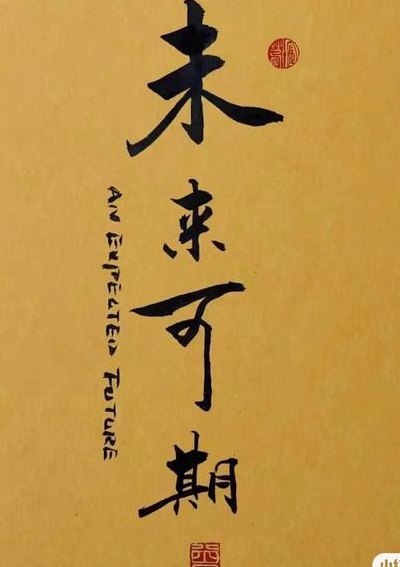 未来可期
AN EXPECTED FUTURE